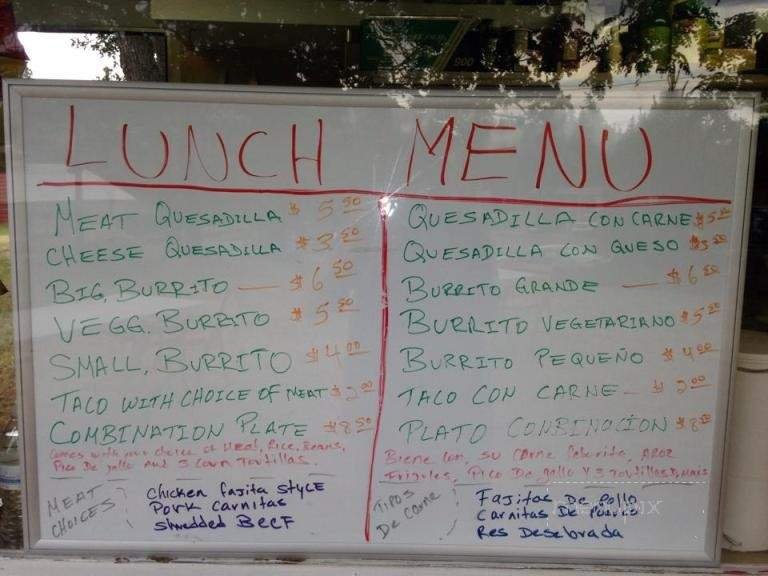 900
LUNCH MENU
MEAT QUESADILLA $5.50
CHEESE QUESADILLA $3.50
BIG, BURRITO — $6.50
VEGG. BURRITO $5.50
SMALL, BURRITO $4.00
TACO WITH CHOICE OF MEAT $2.00
COMBINATION PLATE $8.50
Comes with your choice of Meat, Rice, Beans,
Pico De gallo and 3 Corn Tortillas.
MEAT
CHOICES
Chicken fajita STYLE
Pork Carnitas
Shredded BEEF
QUESADILLA CON CARNE $5.50
QUESADILLA CON QUESO $3.50
BURRITO GRANDE — $6.50
BURRITO VEGETARIANO $5.50
BURRITO PEQUEÑO $4.00
TACO CON CARNE — $2.00
PLATO COMBINACION $8.50
Biene Con, su Carne Faborita, AROZ
Frijoles, Pico De gallo Y 3 Tortillas D, Mais
TIPOS
De Carne
Fajitas De Pollo
Carnitas De Puerco
Res Desebrada